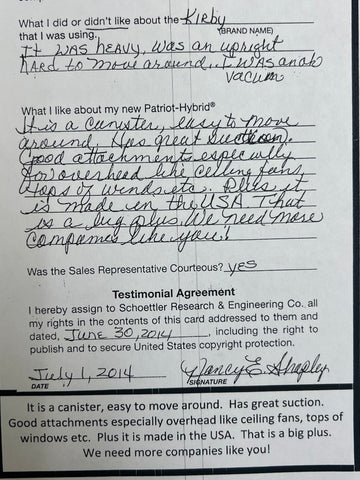 What I did or didn't like about the Kirby
that I was using.. (BRAND NAME)
It was heavy, was an upright
hard to move around,
vacum
What I like about my new Patriot-Hybrid®
It is a canister, easy to move
around, Has great suction.
Good attachments especially
for overhead like ceiling fans,
tops of winds etc. Plus it
is made in the USA. That
is a big plus. We need more
companies like you!
Was the Sales Representative Courteous? yes
Testimonial Agreement
I hereby assign to Schoettler Research & Engineering Co. all
my rights in the contents of this card addressed to them and
dated, June 30, 2014, including the right to
publish and to secure United States copyright protection.
July 1, 2014 Nancy E. Shapley
DATE SIGNATURE
It is a canister, easy to move around. Has great suction.
Good attachments especially overhead like ceiling fans, tops of
windows etc. Plus it is made in the USA. That is a big plus.
We need more companies like you!